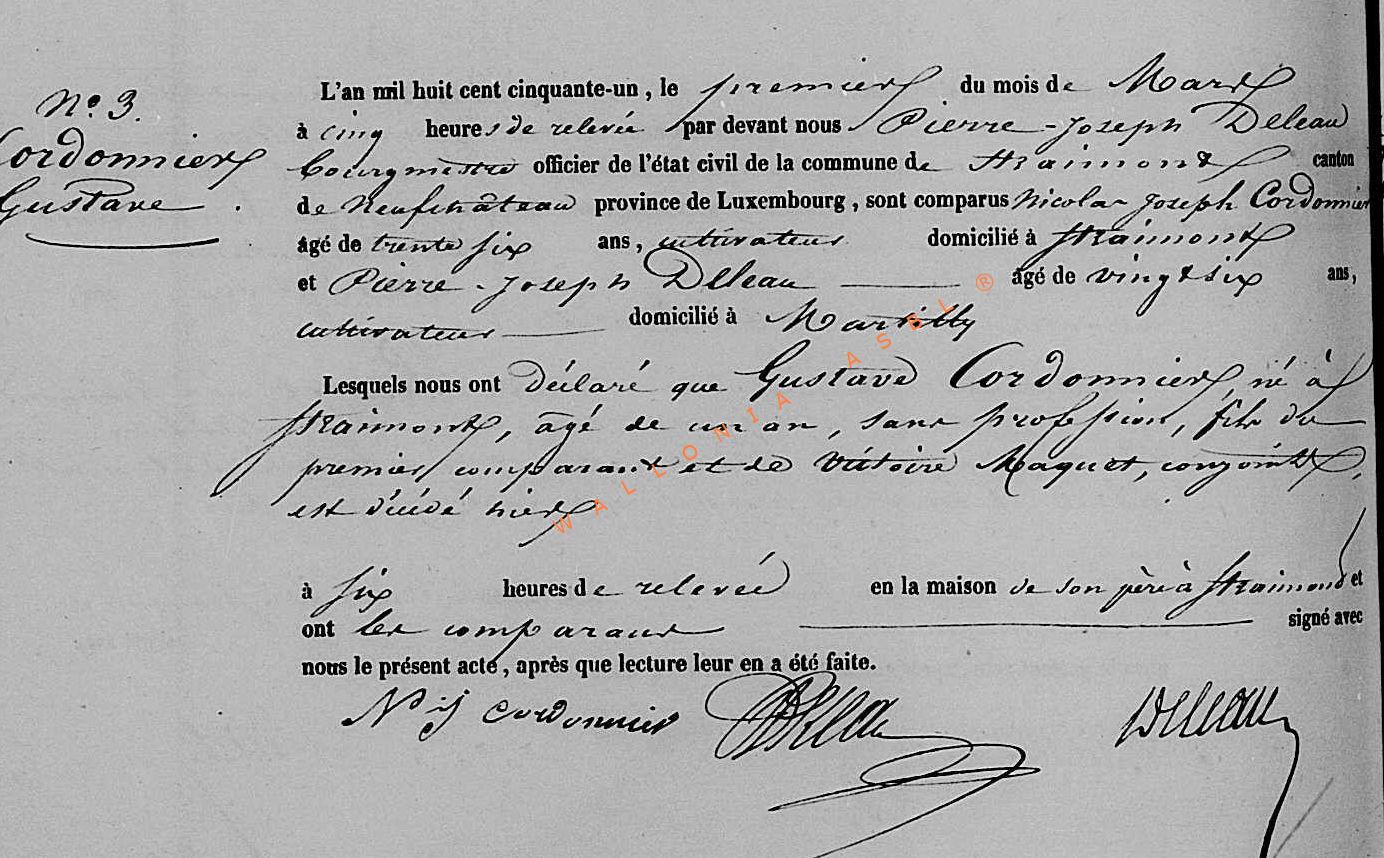 N° 3.
Cordonnier
Gustave .
L'an mil huit cent cinquante-un, le premier du mois de Mars
à cinq heures de relevée par devant nous Pierre-Joseph Deleau
bourgmestre officier de l'état civil de la commune de Straimont canton
de Neufchâteau province de Luxembourg, sont comparus Nicolas Joseph Cordonnier
âgé de trente six ans, cultivateur domicilié à Straimont
et Pierre-Joseph Deleau âgé de vingt six ans,
cultivateur domicilié à Martilly
Lesquels nous ont déclaré que Gustave Cordonnier, né à
Straimont, âgé de un an, sans profession, fils du
premier comparant et de Victoire Maquet, conjoints,
est décédé hier
à six heures de relevée en la maison de son père à Straimond et
ont les comparans signé avec
nous le présent acte, après que lecture leur en a été faite.
N j Cordonnier Deleau Deleau
WALLONIA ASBL ®